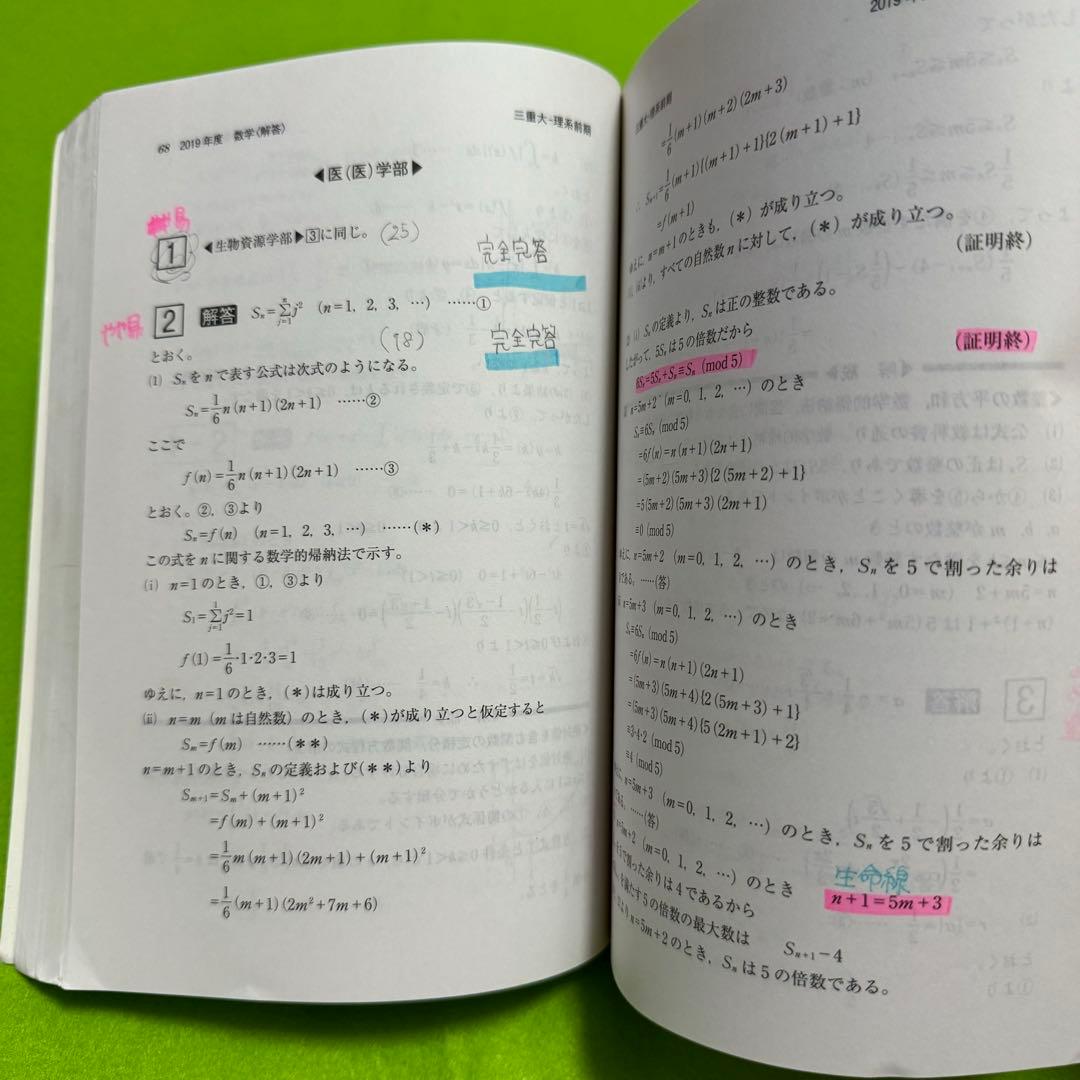 68 2019年度 数学〈解答〉 三重大-理系前期
◀医(医)学部▶
1 ◀生物資源学部▶3に同じ。 (25)
完全完答
やや易
2 解答 Sₙ=Σⁿⱼ₌₁j² (n=1, 2, 3, …) ……①
(18) 完全完答
とおく。
(1) Sₙをnで表す公式は次式のようになる。
Sₙ=1/6n(n+1)(2n+1) ……②
ここで
f(n)=1/6n(n+1)(2n+1) ……③
とおく。②, ③より
Sₙ=f(n) (n=1, 2, 3, …) ……(*)
この式をnに関する数学的帰納法で示す。
(i) n=1のとき, ①, ③より
S₁=Σ¹ⱼ₌₁j²=1
f(1)=1/6・1・2・3=1
ゆえに, n=1のとき, (*)は成り立つ。
(ii) n=m (mは自然数) のとき, (*)が成り立つと仮定すると
Sₘ=f(m) ……(**)
n=m+1のとき, Sₙの定義および(**)より
Sₘ₊₁=Sₘ+(m+1)²
=f(m)+(m+1)²
=1/6m(m+1)(2m+1)+(m+1)²
=1/6(m+1)(2m²+7m+6)
三重大-理系前期
=1/6(m+1)(m+2)(2m+3)
∴ Sₘ₊₁=1/6(m+1){(m+1)+1}{2(m+1)+1}
=f(m+1)
ゆえに, n=m+1のときも, (*)が成り立つ。
より, すべての自然数nに対して, (*)が成り立つ。
(証明終)
(i) Sₙの定義より, Sₙは正の整数である。
したがって, 5Sₙは5の倍数だから
6Sₙ=5Sₙ+Sₙ≡Sₙ (mod 5) (証明終)
n=5m+2 (m=0, 1, 2, …) のとき
Sₙ≡6Sₙ (mod 5)
=6f(n)=n(n+1)(2n+1)
=(5m+2)(5m+3){2(5m+2)+1}
=5(5m+2)(5m+3)(2m+1)
≡0 (mod 5)
ゆえに, n=5m+2 (m=0, 1, 2, …) のとき, Sₙを5で割った余りは
である。……(答)
n=5m+3 (m=0, 1, 2, …) のとき
Sₙ≡6Sₙ (mod 5)
=6f(n)=n(n+1)(2n+1)
=(5m+3)(5m+4){2(5m+3)+1}
=(5m+3)(5m+4){5(2m+1)+2}
≡3・4・2 (mod 5)
≡4 (mod 5)
n=5m+3 (m=0, 1, 2, …) のとき, Sₙを5で割った余りは
である。……(答)
n=5m+2 (m=0, 1, 2, …) のとき
生命線
n+1=5m+3
を5で割った余りは4であるから
を満たす5の倍数の最大数は Sₙ₊₁−4
より n=5m+2のとき, Sₙは5の倍数である。